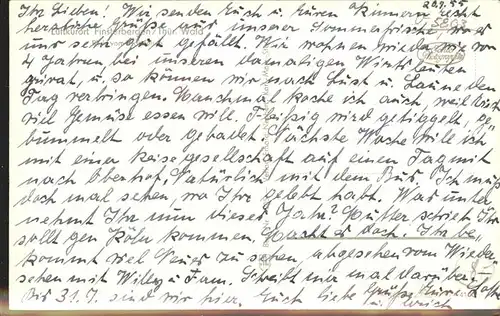 20.7.55
Ihr Lieben! Wir senden Euch u. Euren Kindern recht
herzliche Grüße aus unserer Sommerfrische, wo es
Luftkurort Finsterbergen / Thür. Wald
uns sehr gut gefällt. Wir wohnen wieder wie vor
4 Jahren bei unseren damaligen Wirtsleuten
privat, u. so können wir nach Lust u. Laune den
Tag verbringen. Manchmal koche ich auch, weil Horst
viel Gemüse essen will. Fleißig wird getippelt, ge-
bummelt oder gebadet. Nächste Woche will ich
mit einer Reisegesellschaft auf einen Tag mit
nach Oberhof. Natürlich mit dem Bus. Ich muß
doch mal sehen, wo Ihr gelebt habt. Was unter-
nehmt Ihr nun dieses Jahr? Mutter schrieb Ihr
sollt gen Köln kommen. Macht es doch. Ihr be-
kommt viel Neues zu sehen, abgesehen vom Wieder-
sehen mit Willy u. Fam. Schreibt mir mal darüber.
Bis 31.7. sind wir hier. Euch liebe Grüße Eure
u.